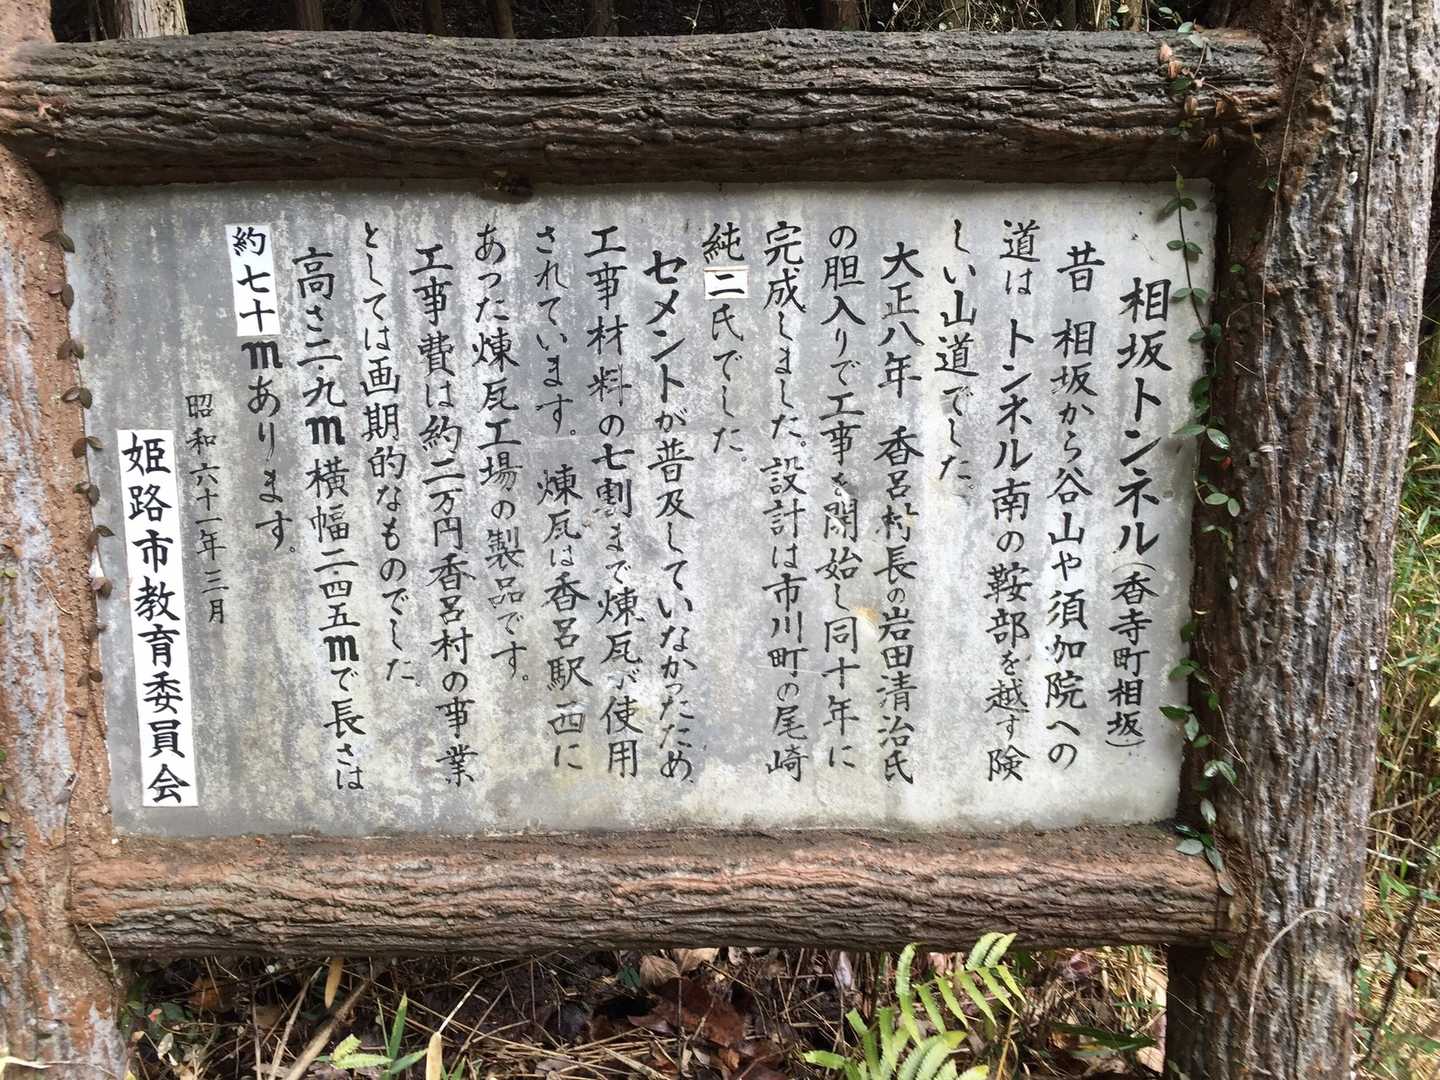 相坂トンネル(香寺町相坂)
昔 相坂から谷山や須加院への
道は トンネル南の鞍部を越す険
しい山道でした。
大正八年 香呂村長の岩田清治氏
の胆入りで工事を開始し同十年に
完成しました。設計は市川町の尾崎
純二氏でした。
セメントが普及していなかったため、
工事材料の七割まで煉瓦が使用
されています。煉瓦は香呂駅西に
あった煉瓦工場の製品です。
工事費は約二万円香呂村の事業
としては画期的なものでした。
高さ二.九m横幅二.四五mで長さは
約七十mあります。
昭和六十一年三月
姫路市教育委員会